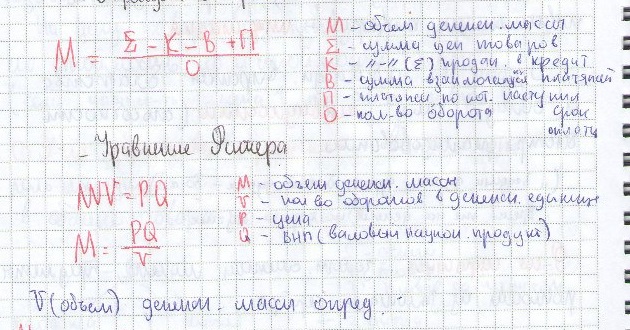 М = Σ - К - В + П / О
М - объем денежн. массы
Σ - сумма цен товаров
К - -"- (Σ) продан. в кредит
В - сумма взаимогасящ платежей
П - платежи, по кот. наступил срок оплаты
О - кол-во оборота
- Уравнение Фишера
MV = PQ
M = PQ / V
М - объем денежн. массы
V - кол-во оборотов в денежн. единице
Р - цена
Q - ВНП (валовый национ. продукт)
V (объем) денежн. массы опред. :